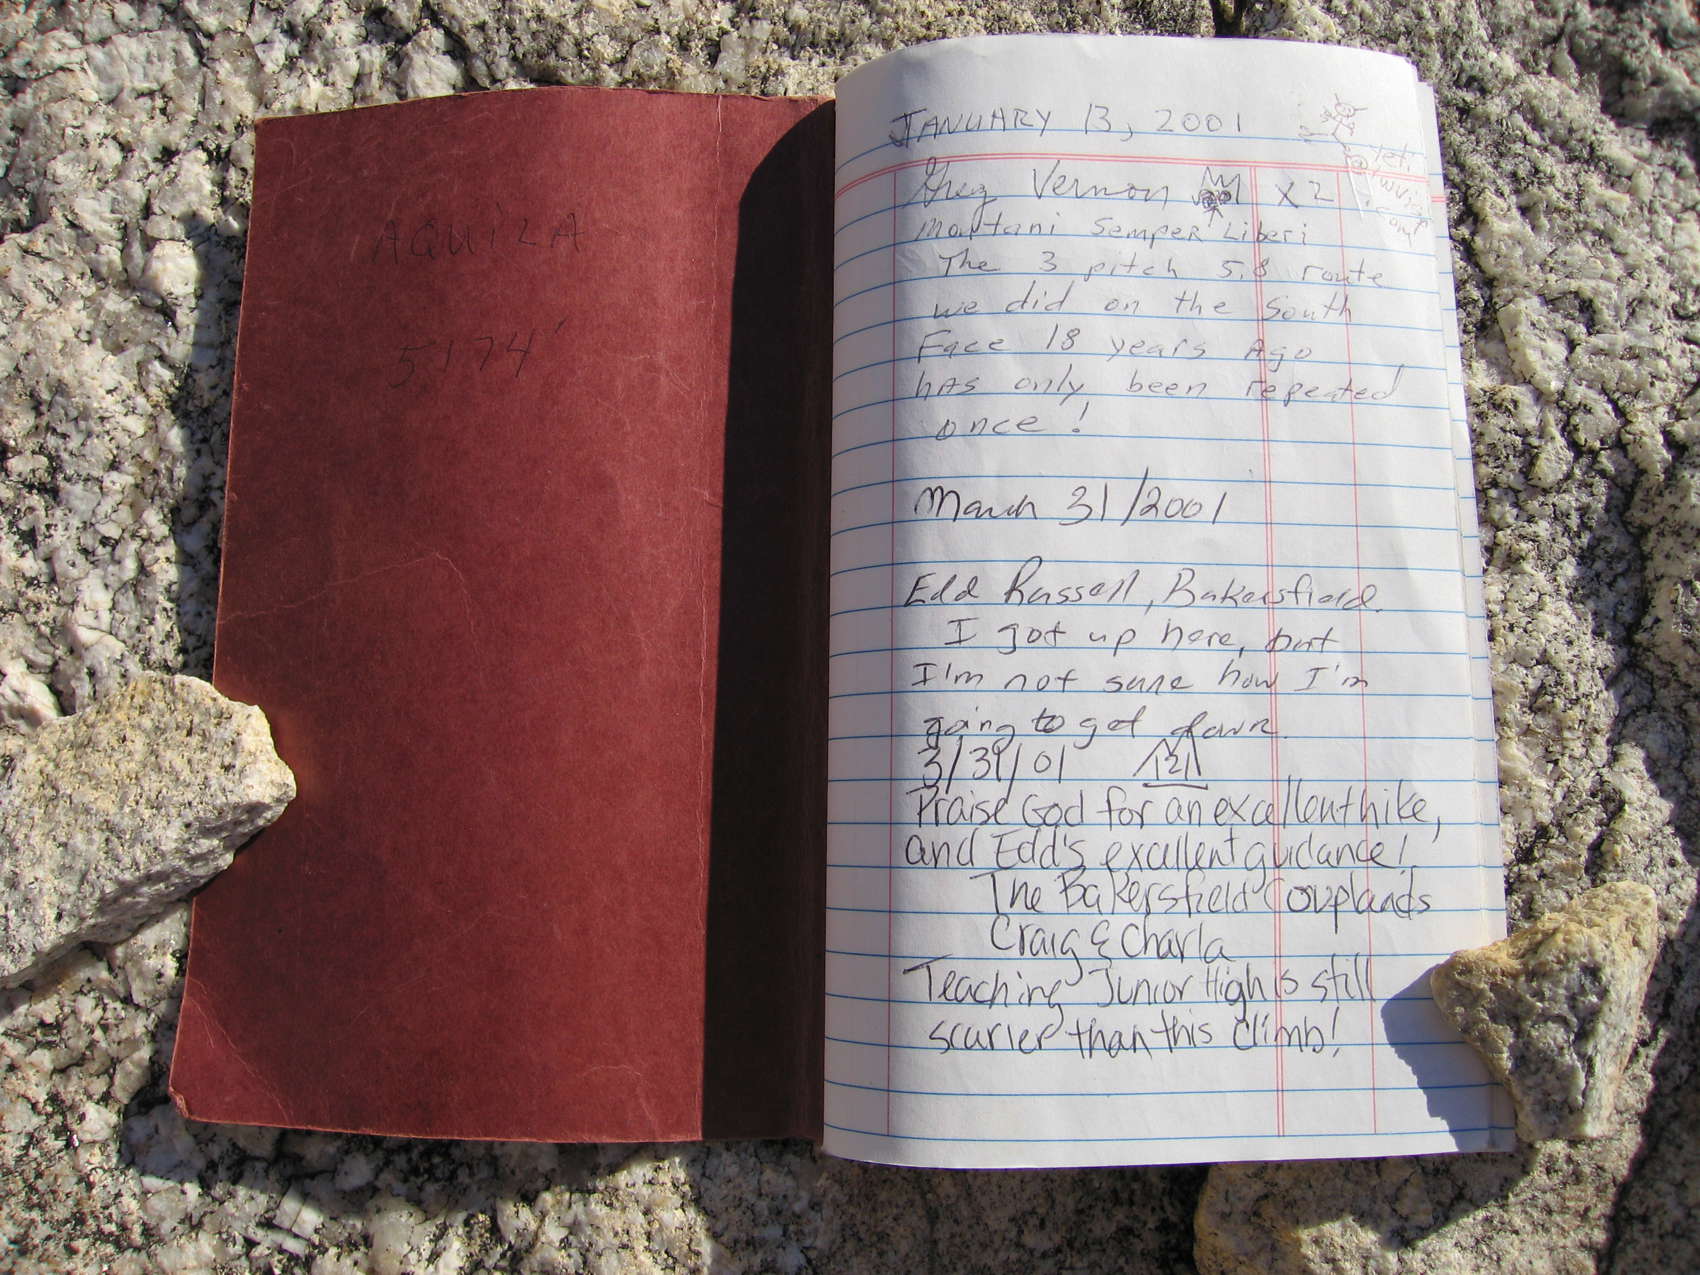 AQUILA
5174'
JANUARY 13, 2001
Greg Vernon X2
Montani Semper Liberi
The 3 pitch 5.8 route
we did on the South
Face 18 years Ago,
has only been repeated
once!
March 31/2001
Edd Russell, Bakersfield.
I got up here, but
I'm not sure how I'm
going to get down.
3/31/01 121
Praise God for an excellent hike,
and Edd's excellent guidance!
The Bakersfield Couplands
Craig & Charla
Teaching Junior High is still
scarier than this climb!